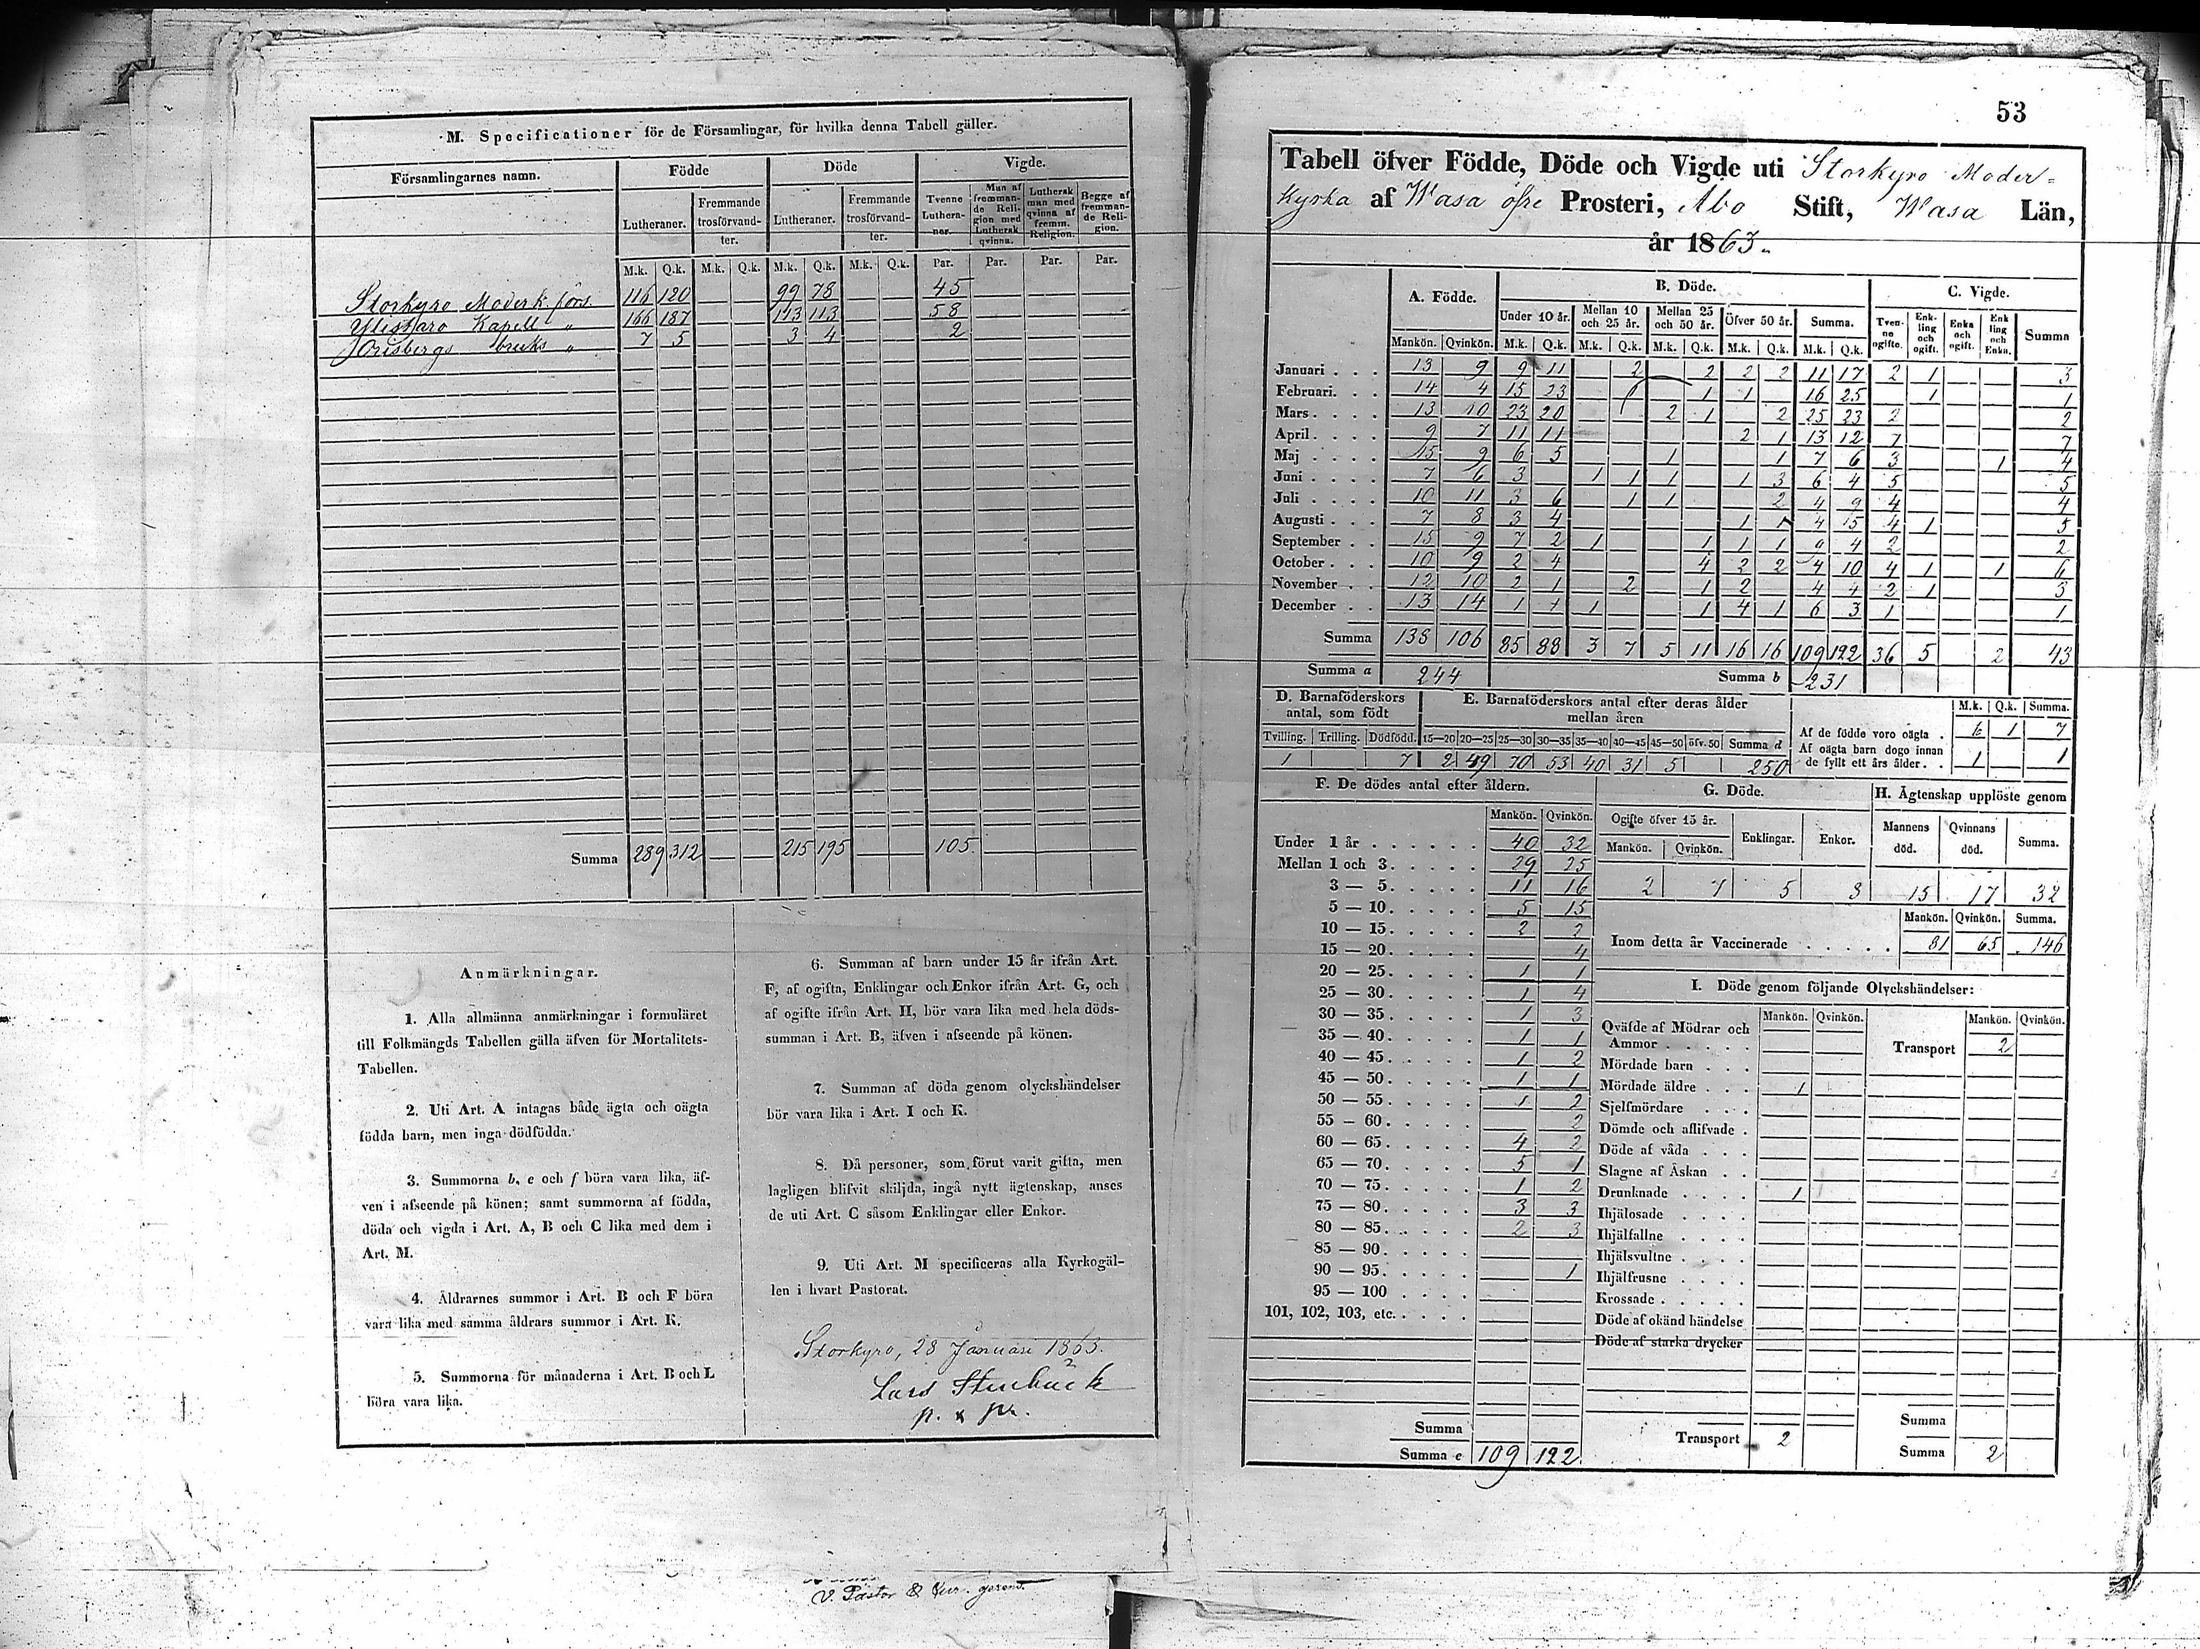 M. Specificationer för de Församlingar, för hvilka denna Tabell gäller.
Församlingarnes namn. Födde Döde Vigde.
Lutheraner. Fremmande trosförvandter. Lutheraner. Fremmande trosförvandter. Tvenne Lutheraner. Man af fremmande Religion med Luthersk qvinna. Luthersk man med qvinna af fremm. Religion. Begge af fremmande Religion.
M.k. Q.k. M.k. Q.k. M.k. Q.k. M.k. Q.k. Par. Par. Par. Par.
Storkyro Moderk. förs. 116 120 99 78 45
Ylistaro Kapell " 166 187 113 113 58
Orisbergs bruks " 7 5 3 4 2
Summa 289 312 215 195 105
Anmärkningar.
1. Alla allmänna anmärkningar i formuläret
till Folkmängds Tabellen gälla äfven för Mortalitets-
Tabellen.
2. Uti Art. A intagas både ägta och oägta
födda barn, men inga dödfödda.
3. Summorna b, e och f böra vara lika, äf-
ven i afseende på könen; samt summorna af födda,
döda och vigda i Art. A, B och C lika med dem i
Art. M.
4. Åldrarnes summor i Art. B och F böra
vara lika med samma åldrars summor i Art. K.
5. Summorna för månaderna i Art. B och L
böra vara lika.
6. Summan af barn under 15 år ifrån Art.
F, af ogifta, Enklingar och Enkor ifrån Art. G, och
af ogifte ifrån Art. H, bör vara lika med hela döds-
summan i Art. B, äfven i afseende på könen.
7. Summan af döda genom olyckshändelser
bör vara lika i Art. I och K.
8. Då personer, som förut varit gifta, men
lagligen blifvit skiljda, ingå nytt ägtenskap, anses
de uti Art. C såsom Enklingar eller Enkor.
9. Uti Art. M specificeras alla Kyrkogäl-
len i hvart Pastorat.
Storkyro, 28 Januari 1863.
Lars Stenbäck
p. &
V. Pastor &
53
Tabell öfver Födde, Döde och Vigde uti Storkyro Moder-
kyrka af Wasa öfre Prosteri, Åbo Stift, Wasa Län,
år 1863.
A. Födde. B. Döde. C. Vigde.
Under 10 år. Mellan 10 och 25 år. Mellan 25 och 50 år. Öfver 50 år. Summa. Tvenne ogifte. Enkling och ogift. Enka och ogift. Enkling och Enka. Summa
Mankön. Qvinkön. M.k. Q.k. M.k. Q.k. M.k. Q.k. M.k. Q.k. M.k. Q.k.
Januari . . . 13 9 9 11 2 2 2 2 11 17 2 1 3
Februari. . . 14 4 15 23 1 1 1 16 25 1 1
Mars . . . . 13 10 23 20 2 1 2 25 23 2 2
April . . . . 9 7 11 11 2 1 13 12 7 7
Maj . . . . 15 9 6 5 1 1 7 6 3 1 4
Juni . . . . 7 6 3 1 1 1 1 3 6 4 5 5
Juli . . . . 10 11 3 6 1 1 2 4 9 4 4
Augusti . . . 7 8 3 4 1 1 4 15 4 1 5
September . . 15 9 7 2 1 1 1 1 9 4 2 2
October . . . 10 9 2 4 4 2 2 4 10 4 1 1 6
November . . 12 10 2 1 2 1 2 4 4 2 1 3
December . . 13 14 1 1 1 1 4 1 6 3 1 1
Summa 138 106 85 88 3 7 5 11 16 16 109 122 36 5 2 43
Summa a 244 Summa b 231
D. Barnaföderskors antal, som födt
Tvilling. Trilling. Dödfödd.
1 7
E. Barnaföderskors antal efter deras ålder mellan åren
15—20 20—25 25—30 30—35 35—40 40—45 45—50 öfv. 50 Summa d
2 49 70 53 40 31 5 250
M.k. Q.k. Summa.
Af de födde voro oägta . 6 1 7
Af oägta barn dogo innan
de fyllt ett års ålder . . 1 1
F. De dödes antal efter åldern.
Mankön. Qvinkön.
Under 1 år . . . . . . 40 32
Mellan 1 och 3. . . . . 29 25
3 — 5. . . . . 11 16
5 — 10. . . . . 5 15
10 — 15. . . . . 2 2
15 — 20. . . . . 4
20 — 25. . . . . 1 1
25 — 30. . . . . 1 4
30 — 35. . . . . 1 3
35 — 40. . . . . 1 1
40 — 45. . . . . 1 2
45 — 50. . . . . 1 1
50 — 55. . . . . 1 2
55 — 60. . . . . 2
60 — 65. . . . . 4 2
65 — 70. . . . . 5 1
70 — 75. . . . . 1 2
75 — 80. . . . . 3 3
80 — 85. . . . . 2 3
85 — 90. . . . .
90 — 95. . . . . 1
95 — 100 . . . . .
101, 102, 103, etc. . . . .
Summa
Summa e 109 122
G. Döde.
Ogifte öfver 15 år. Enklingar. Enkor.
Mankön. Qvinkön.
2 7 5 8
H. Ägtenskap upplöste genom
Mannens död. Qvinnans död. Summa.
15 17 32
Mankön. Qvinkön. Summa.
Inom detta år Vaccinerade . . . . . 81 65 146
I. Döde genom följande Olyckshändelser:
Mankön. Qvinkön. Mankön. Qvinkön.
Qväfde af Mödrar och
Ammor . . . . . Transport 2
Mördade barn . . .
Mördade äldre . . . 1
Sjelfmördare . . .
Dömde och aflifvade .
Döde af våda . . .
Slagne af Åskan . .
Drunknade . . . . 1
Ihjälosade . . . .
Ihjälfallne . . . .
Ihjälsvultne . . . .
Ihjälfrusne . . . .
Krossade . . . . .
Döde af okänd händelse
Döde af starka drycker
Summa
Transport 2 Summa 2